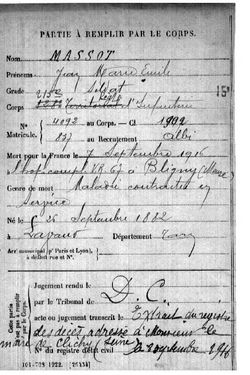 PARTIE À REMPLIR PAR LE CORPS.
Nom MASSOT
Prénoms Jean Marie Emile
Grade Soldat
Corps 215e Territorial d'Infanterie
N° 4092 au Corps. — Cl. 1902
Matricule. 837 au Recrutement Albi
Mort pour la France le 7 Septembre 1916
à Bligny (Marne)
Genre de mort Maladie contractée en
Service
Né le 26 Septembre 1882
à Lavaur Département Tarn
Arr municipal (pr Paris et Lyon),
à défaut rue et N°
Cette partie n'est pas à remplir par le Corps.
Jugement rendu le
par le Tribunal de D. C.
acte ou jugement transcrit le Extrait du registre
des décès adressé à Monsieur le
maire de Clichy (Seine)
N° du registre d'état civil septembre 1916
101-708-1922. [26434]